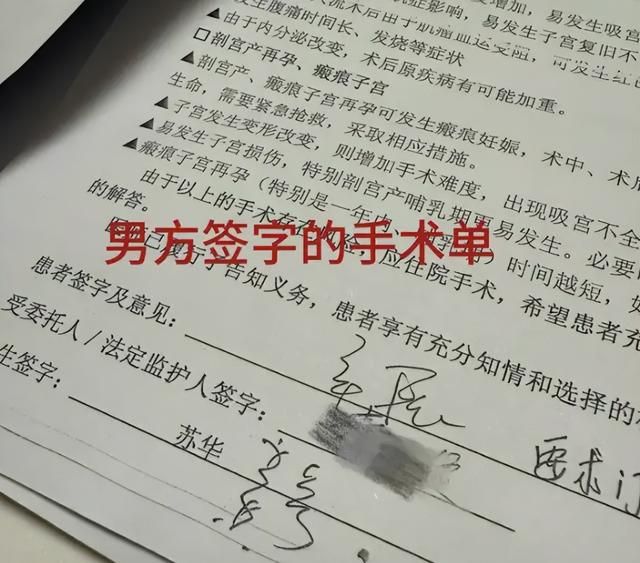 影响，易发生子宫复旧不
流术后由于肌瘤血运受阻，可发生红
发生腹痛时间长、发烧等症状
▲由于内分泌改变，术后原疾病有可能加重。
□剖宫产再孕、瘢痕子宫
▲剖宫产、瘢痕子宫再孕可发生瘢痕妊娠，术中、术
生命，需要紧急抢救，采取相应措施。
▲子宫发生变形改变，则增加手术难度，出现吸宫不全
▲易发生子宫损伤，特别剖宫产哺乳期更易发生。必要
▲瘢痕子宫再孕（特别是一年内 ）时间越短，
由于以上的手术存在风险，应住院手术，希望患者充
的解答。
男方签字的手术单
已履行了告知义务，患者享有充分知情和选择的
患者签字及意见：
受委托人/法定监护人签字：
要求
生签字：
苏华